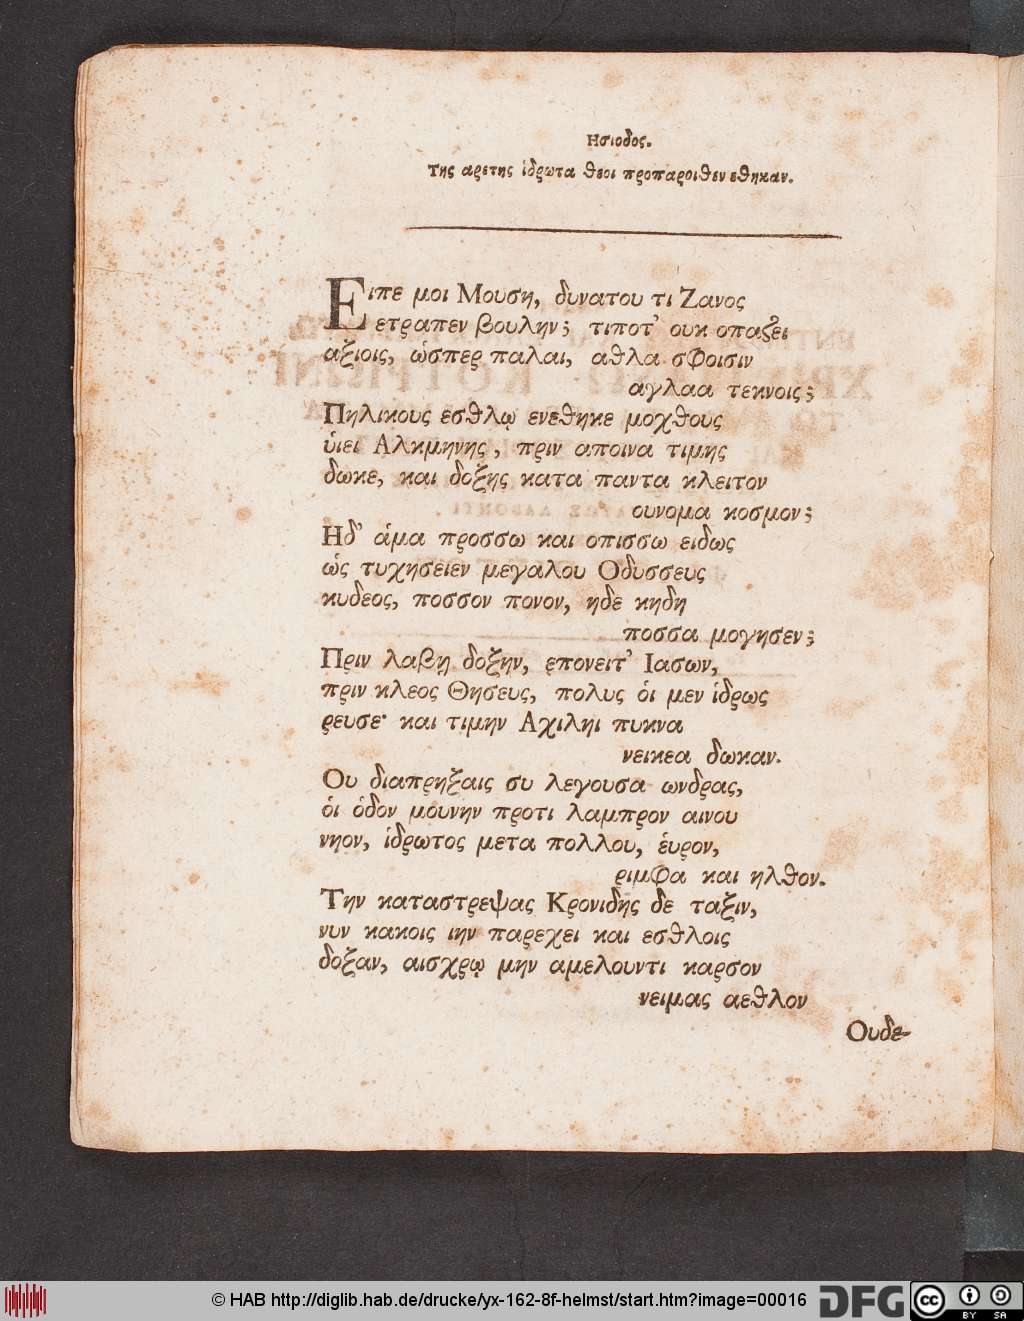 Ησιοδος.
Της αρετης ἱδρωτα θεοι προπαροιθεν εθηκαν.
Ειπε μοι Μουση, δυνατου τι Ζανος
ετραπεν βουλην; τιποτ' ουκ οπαξει
αξιοις, ὡσπερ παλαι, αθλα σφοισιν
αγλαα τεκνοις;
Πηλικους εσθλῳ ενεθηκε μοχθους
ὑιει Αλκμηνης, πριν αποινα τιμης
δωκε, και δοξης κατα παντα κλειτον
ουνομα κοσμον;
Ηδ' ἁμα προσσω και οπισσω ειδως
ὡς τυχησειεν μεγαλου Οδυσσευς
κυδεος, ποσσον πονον, ηδε κηδη
ποσσα μογησεν;
Πριν λαβῃ δοξην, επονειτ' Ιασων,
πριν κλεος Θησευς, πολυς ὁι μεν ἱδρως
ρευσε· και τιμην Αχιληι πυκνα
νεικεα δωκαν.
Ου διαπρηξαις συ λεγουσα ωνδρας,
ὁι ὁδον μουνην προτι λαμπρον αινου
νηον, ἱδρωτος μετα πολλου, ἑυρον,
ριμφα και ηλθον.
Την καταστρεψας Κρονιδης δε ταξιν,
νυν κακοις ιην παρεχει και εσθλοις
δοξαν, αισχρῳ μην αμελουντι καρσον
νειμας αεθλον
Ουδε
© HAB http://diglib.hab.de/drucke/yx-162-8f-helmst/start.htm?image=00016
DFG
cc BY SA